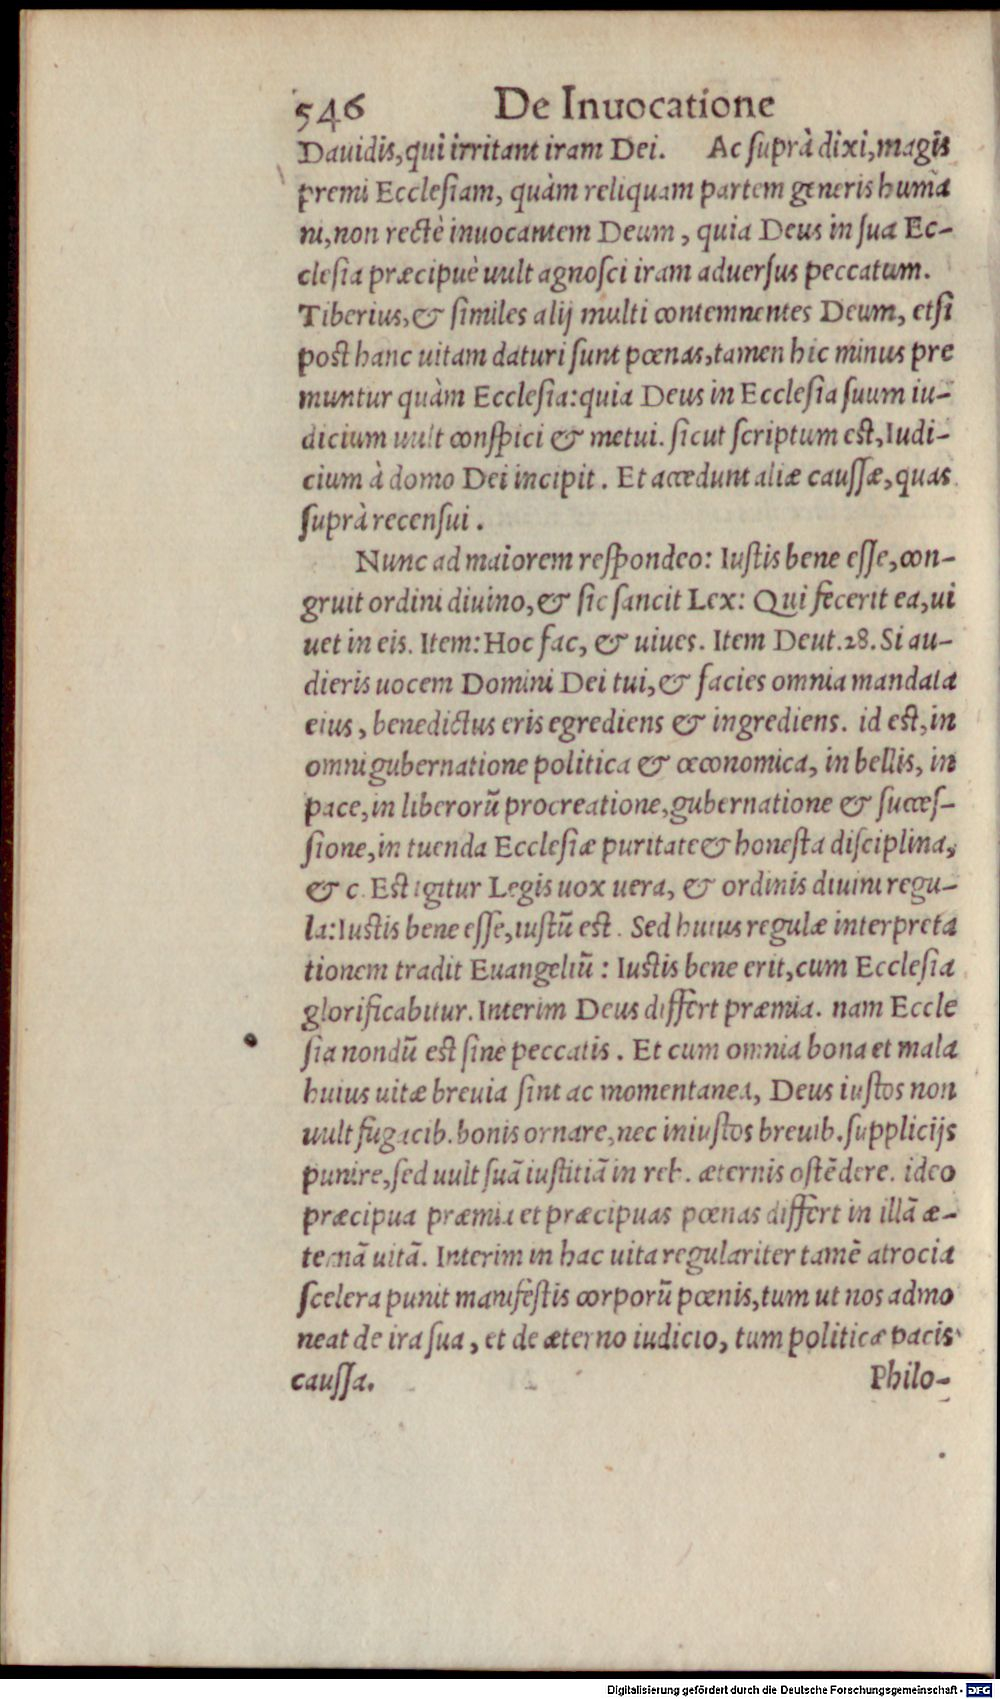 546 De Inuocatione
Dauidis, qui irritant iram Dei. Ac suprà dixi, magis
premi Ecclesiam, quàm reliquam partem generis huma
ni, non rectè inuocantem Deum, quia Deus in sua Ec-
clesia præcipuè uult agnosci iram aduersus peccatum.
Tiberius, & similes alij multi contemnentes Deum, etsi
post hanc uitam daturi sunt pœnas, tamen hic minus pre
muntur quàm Ecclesia: quia Deus in Ecclesia suum iu-
dicium uult conspici & metui. sicut scriptum est, Iudi-
cium à domo Dei incipit. Et accedunt aliæ caussæ, quas
suprà recensui.
Nunc ad maiorem respondeo: Iustis bene esse, con-
gruit ordini diuino, & sic sancit Lex: Qui fecerit ea, ui
uet in eis. Item: Hoc fac, & uiues. Item Deut. 28. Si au-
dieris uocem Domini Dei tui, & facies omnia mandata
eius, benedictus eris egrediens & ingrediens. id est, in
omni gubernatione politica & œconomica, in bellis, in
pace, in liberorū procreatione, gubernatione & succes-
sione, in tuenda Ecclesiæ puritate & honesta disciplina,
& c. Est igitur Legis uox uera, & ordinis diuini regu-
la: Iustis bene esse, iustū est. Sed huius regulæ interpreta
tionem tradit Euangeliū: Iustis bene erit, cum Ecclesia
glorificabitur. Interim Deus differt præmia. nam Eccle
sia nondū est sine peccatis. Et cum omnia bona et mala
huius uitæ breuia sint ac momentanea, Deus iustos non
uult fugacib. bonis ornare, nec iniustos breuib. supplicijs
punire, sed uult suā iustitiā in reb. æternis ostēdere. ideo
præcipua præmia et præcipuas pœnas differt in illā æ-
ternā uitā. Interim in hac uita regulariter tamē atrocia
scelera punit manifestis corporū pœnis, tum ut nos admo
neat de ira sua, et de æterno iudicio, tum politicæ pacis
caussa. Philo-
Digitalisierung gefördert durch die Deutsche Forschungsgemeinschaft - DFG